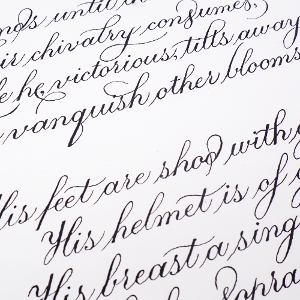 until
chivalry consumes,
he victorious, tilts away
vanquish other blooms
His feet are shod with
His helmet is of
His breast a sing